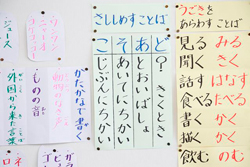 うごきを
あらわすことば
見る みる
聞く きく
話す はなす
食べる たべる
書く かく
描く かく
飲む のむ
さししめすことば
こそあど
？きくとき
とおいばしょ
あいてにちかい
じぶんにちかい
かたかなで書く
ものの音
外国から来た言葉
ジュース